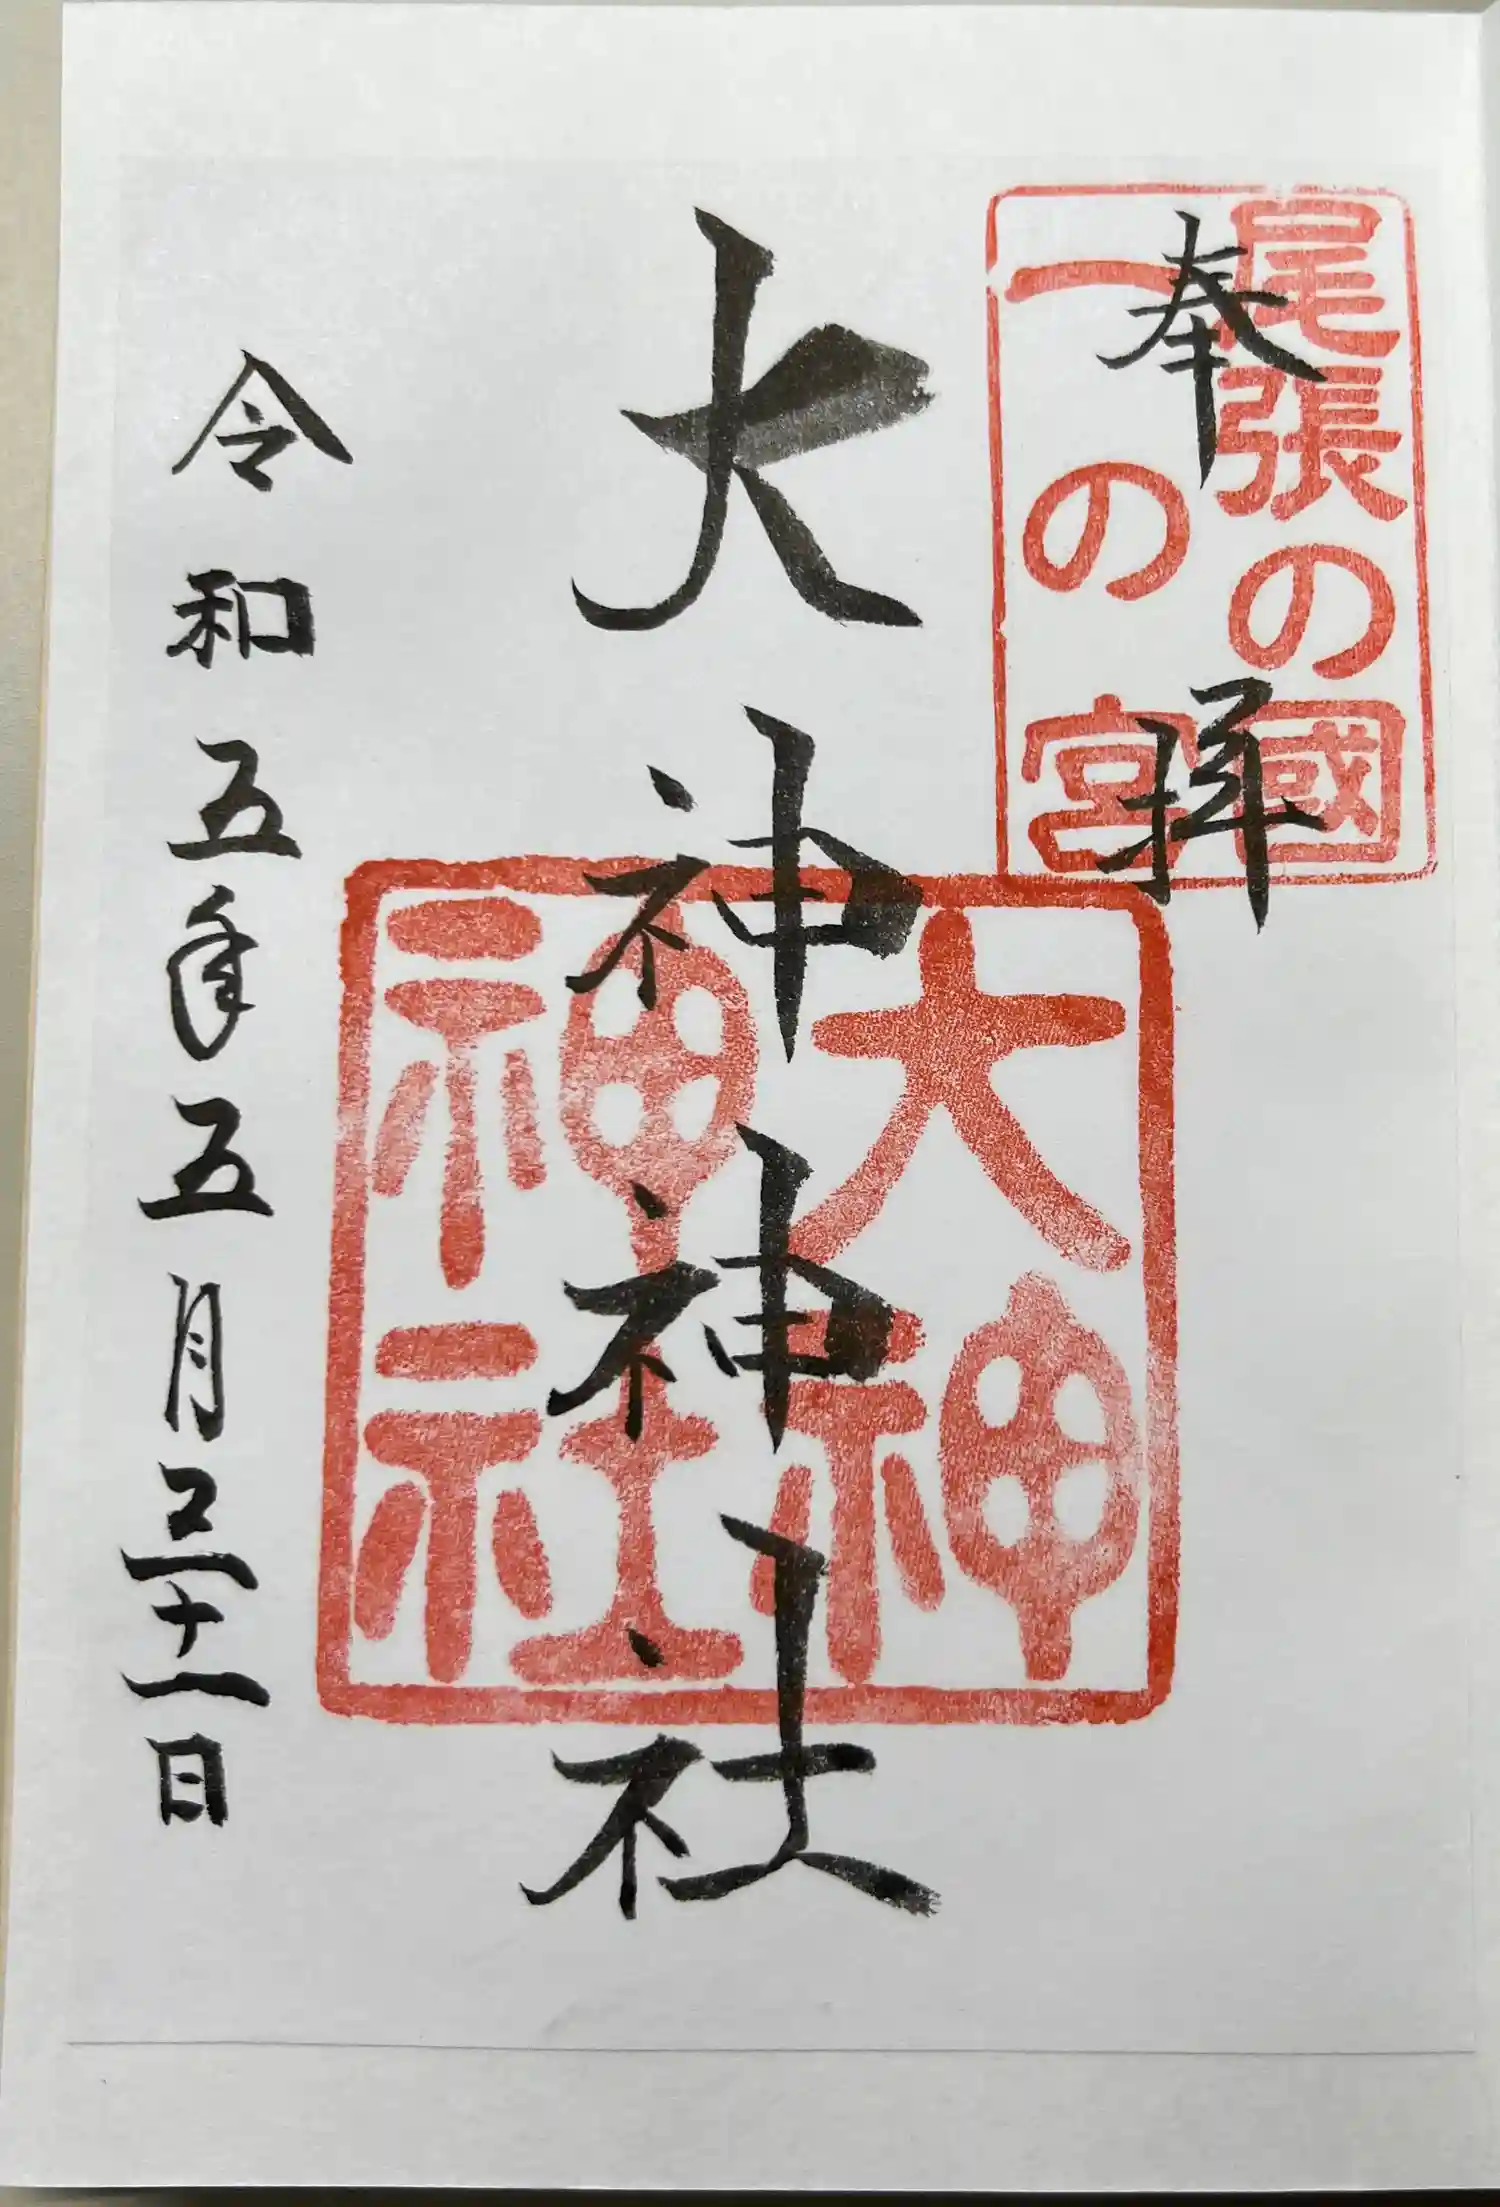 尾張の國
一の宮
奉拝
大神神社
大神
神社
令和五年五月三十一日